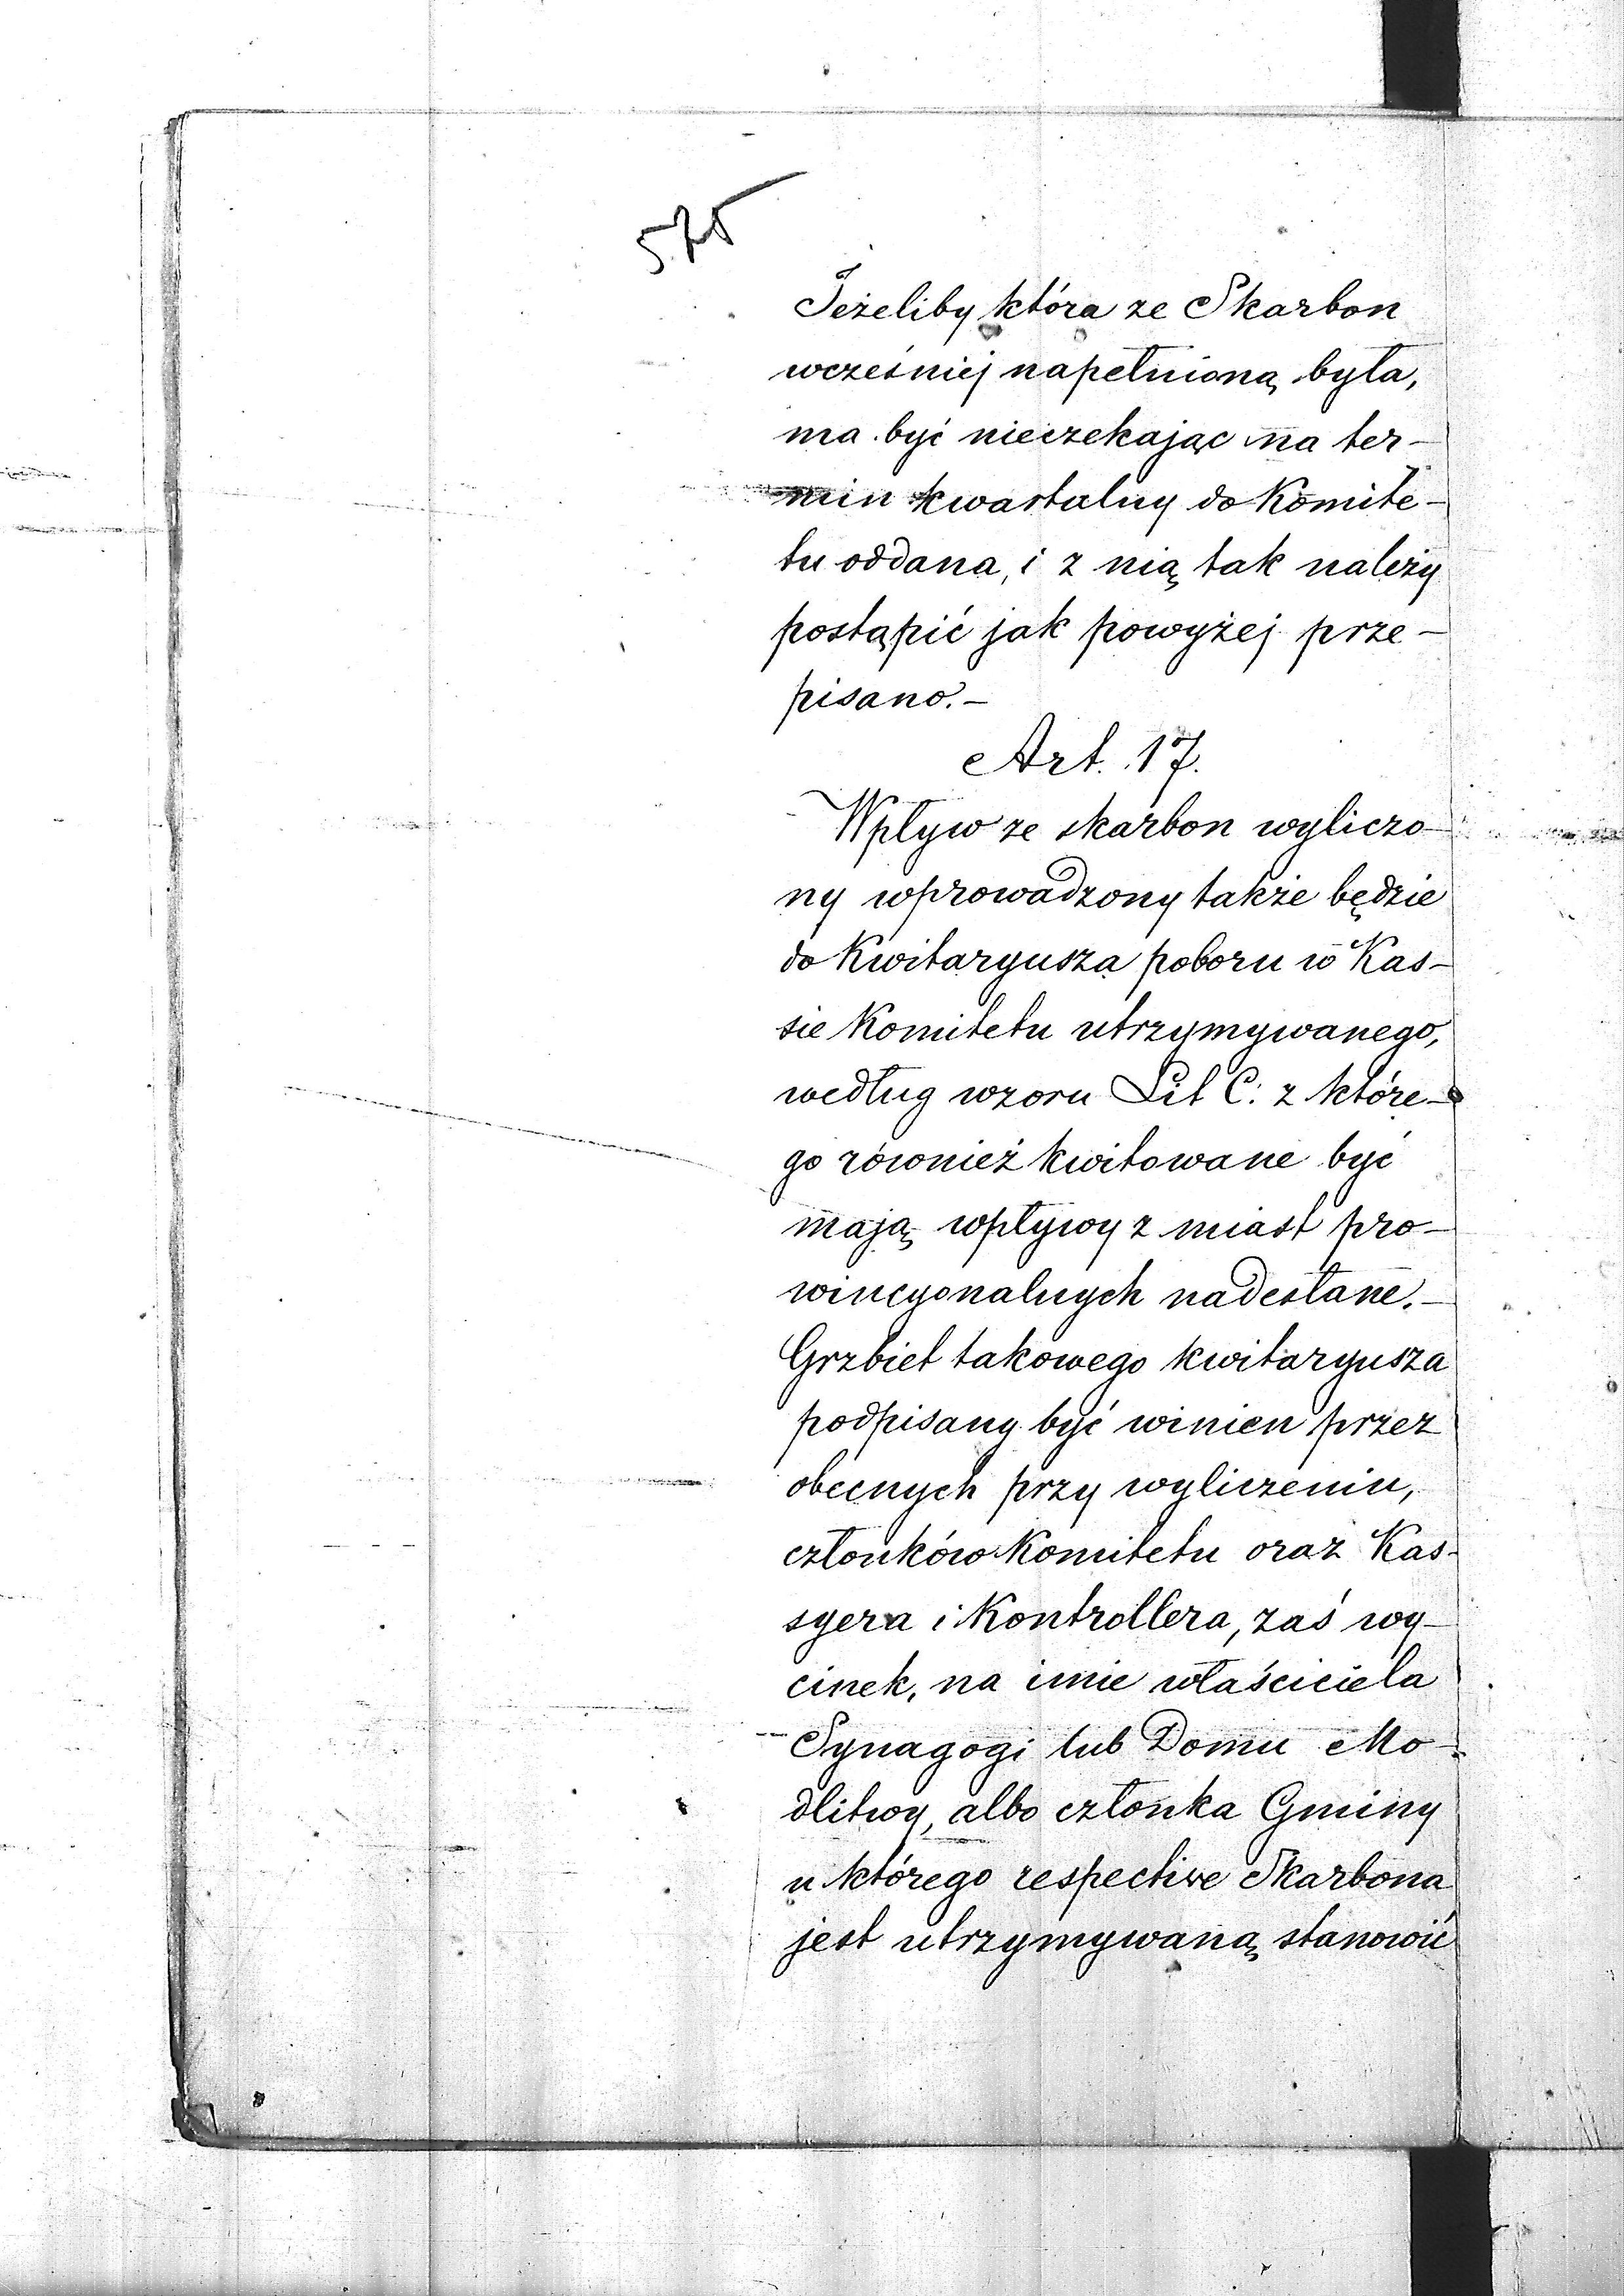 575
Jeżeliby która ze Skarbon
wcześniej napełnioną była,
ma być nieczekając na ter-
min kwartalny do Komite-
tu oddana, i z nią tak należy
postąpić jak powyżej prze-
pisano.-
Art. 17.
Wpływ ze skarbon wyliczo-
ny wprowadzony także będzie
do Kwitaryusza poboru w Kas-
sie Komitetu utrzymywanego,
według wzoru Lit C. z które-
go również kwitowane być
mają wpływy z miast pro-
wincyonalnych nadesłane.-
Grzbiet takowego kwitaryusza
podpisany być winien przez
obecnych przy wyliczeniu,
członków Komitetu oraz Kas-
syera i Kontrollera, zaś wy-
cinek, na imie właściciela
Synagogi lub Domu Mo-
dlitwy, albo członka Gminy
u którego respective Skarbona
jest utrzymywaną stanowić